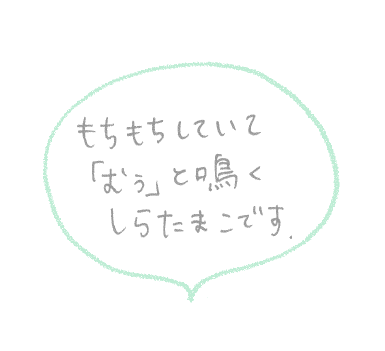 もちもちしていて
「むぅ」と鳴く
しらたまこです.